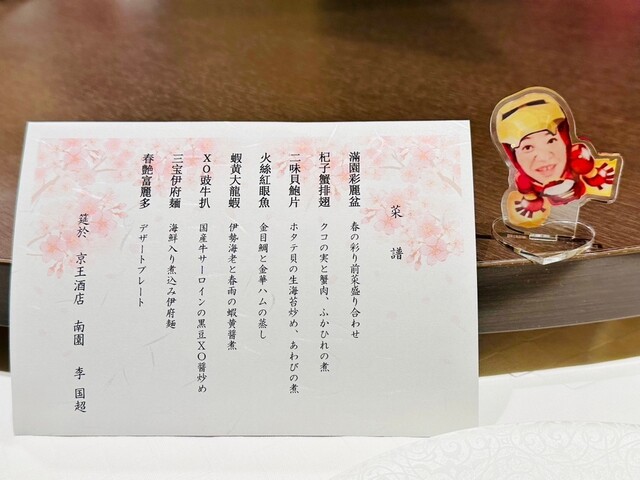 菜譜
滿園彩麗盆 春の彩り前菜盛り合わせ
杞子蟹排翅 クコの実と蟹肉、ふかひれの煮
二味貝鮑片 ホタテ貝の生海苔炒め、あわびの煮
火絲紅眼魚 金目鯛と金華ハムの蒸し
蝦黄大龍蝦 伊勢海老と春雨の蝦黄醬煮
XO豉牛扒 国産牛サーロインの黒豆XO醬炒め
三宝伊府麺 海鮮入り煮込み伊府麺
春艶富麗多 デザートプレート
筵於 京王酒店 南園 李 国超